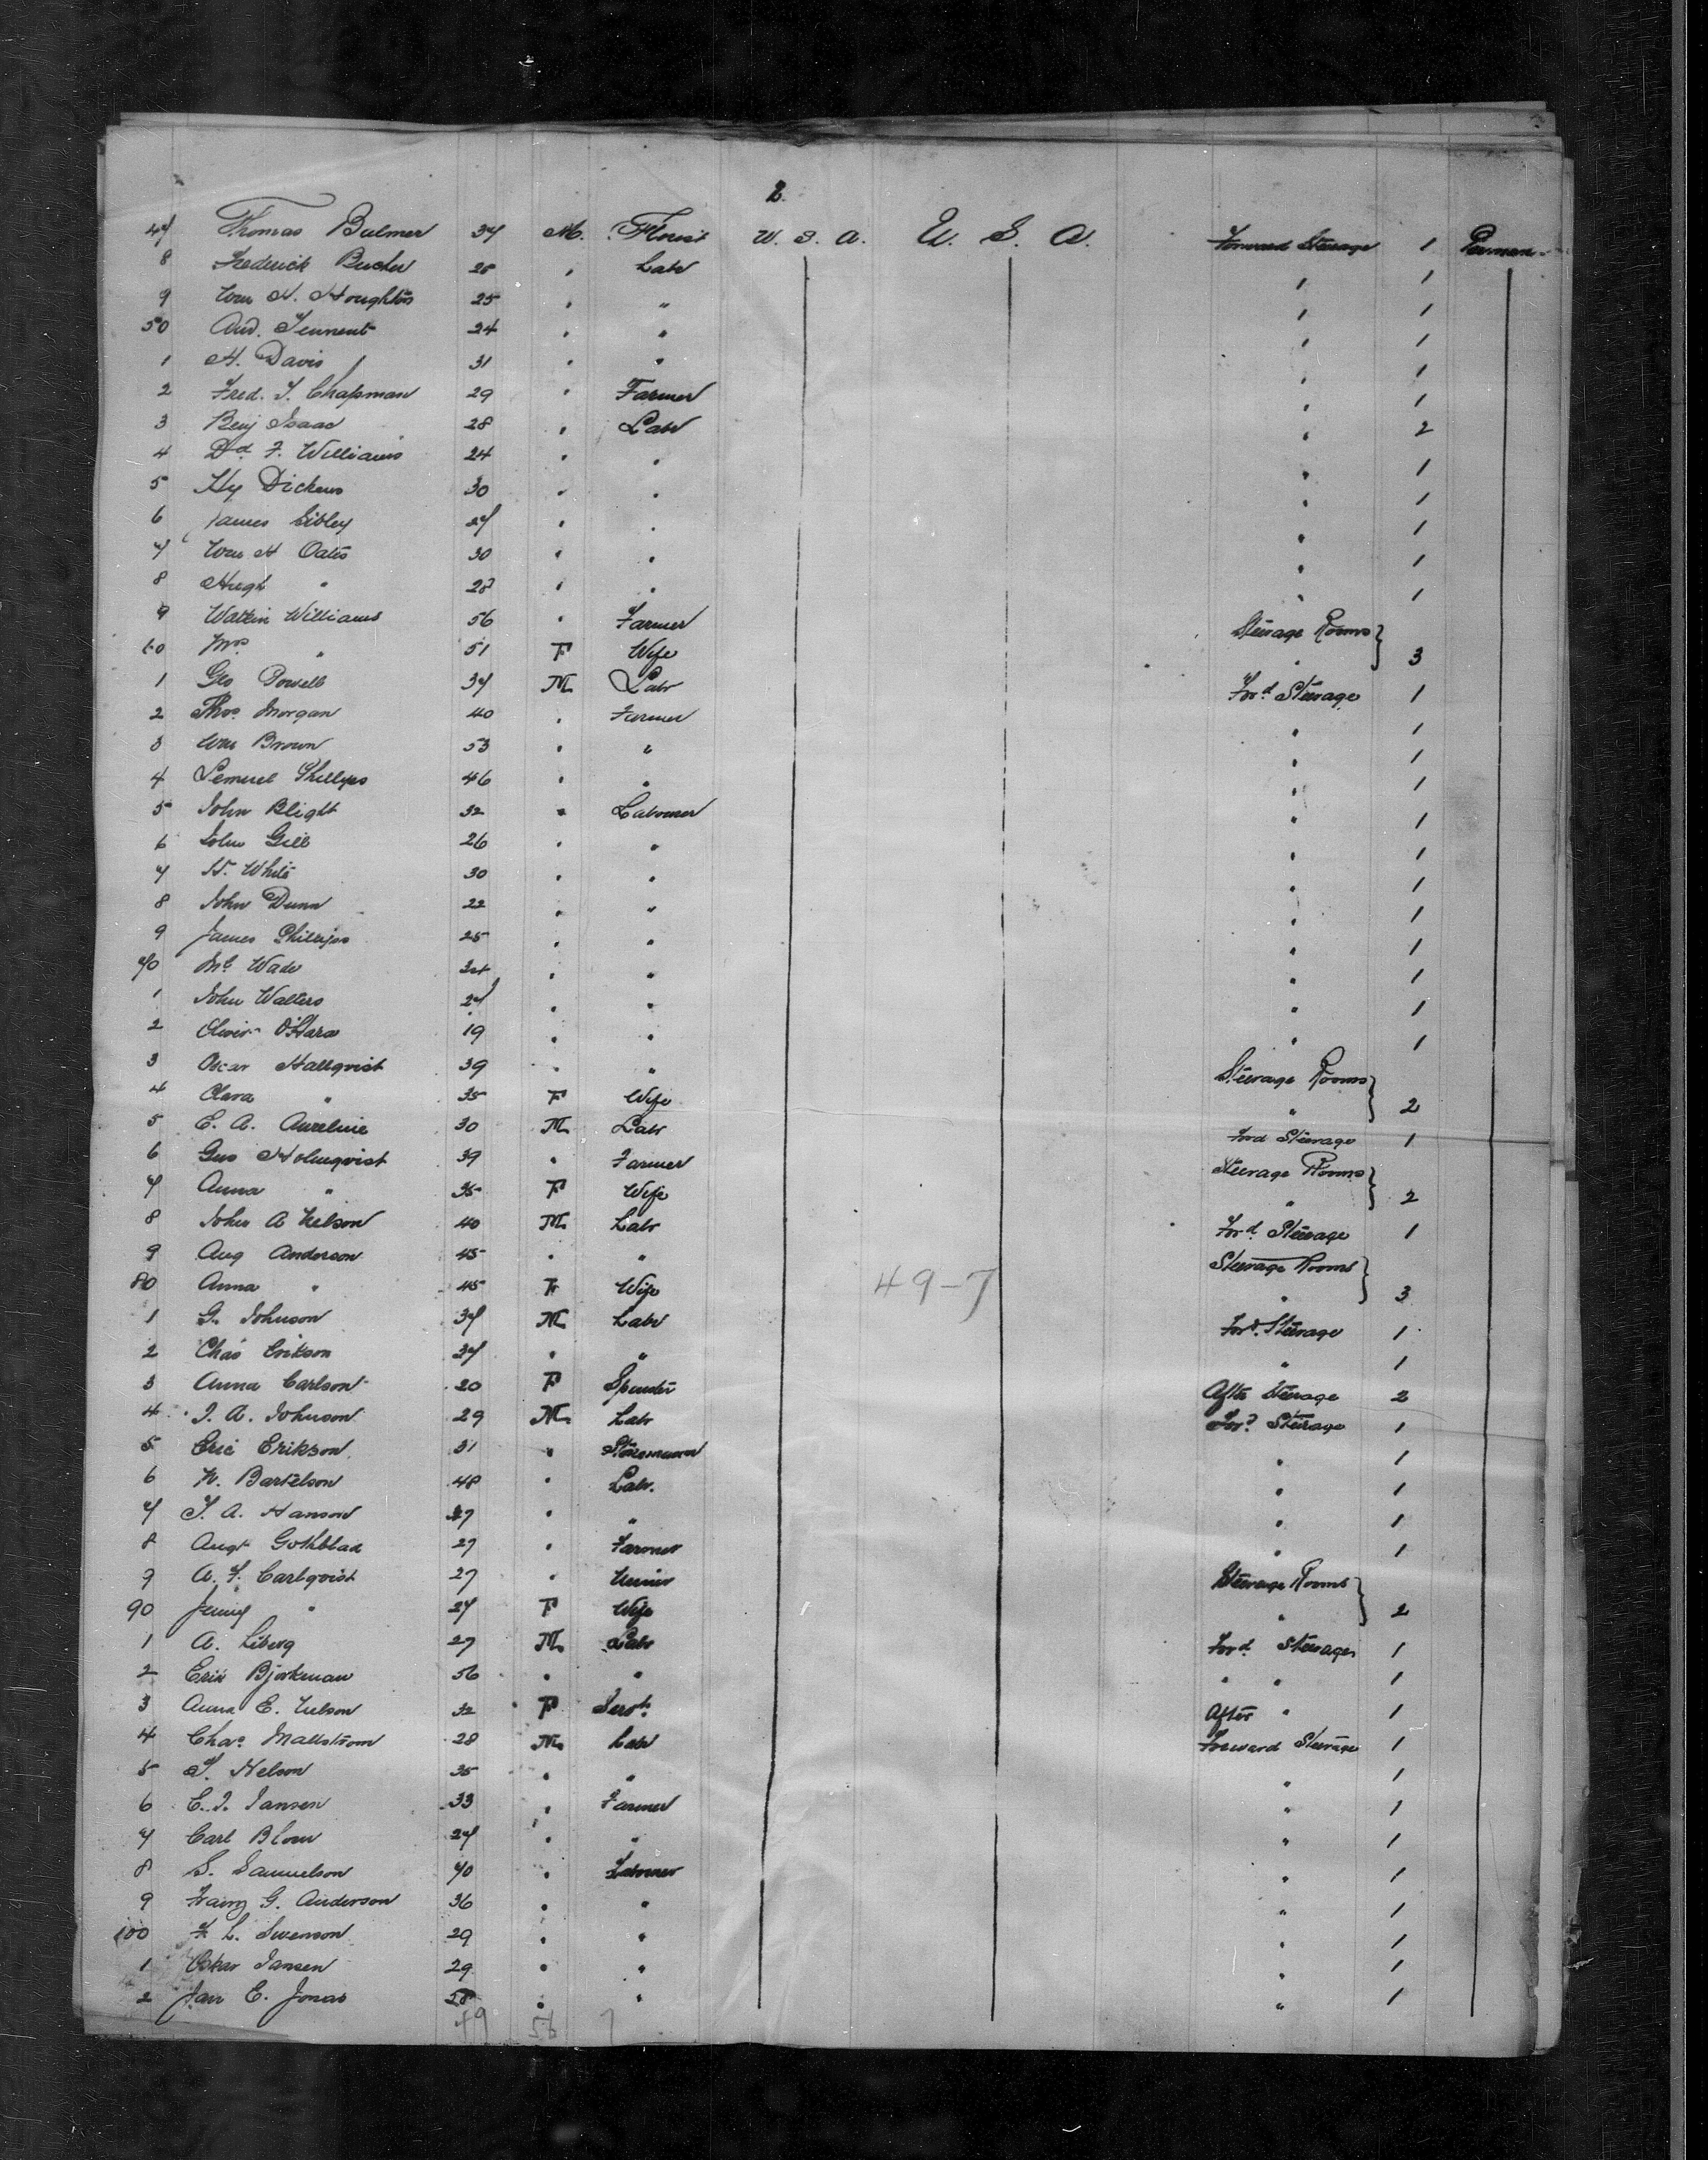 2.
47 Thomas Bulmer 37 M. Florist U. S. A. U. S. A. Forward Steerage 1 Perman-
8 Frederick Bucher 28 " Labr " 1
9 Wm H. Houghton 25 " " " 1
50 And. Tennent 24 " " " 1
1 H. Davis 31 " " " 1
2 Fred. T. Chapman 29 " Farmer " 1
3 Benj Isaac 28 " Labr " 2
4 Dd F. Williams 24 " " " 1
5 Hy Dickens 30 " " " 1
6 James Sibley 27 " " " 1
7 Wm H Oates 30 " " " 1
8 Hugh " 28 " " " 1
9 Watkin Williams 56 " Farmer Steerage Rooms
60 Mrs " 51 F Wife " 3
1 Geo Powell 37 M Labr Ford Steerage 1
2 Thos Morgan 40 " Farmer " 1
3 Wm Brown 53 " " " 1
4 Lemuel Phillips 46 " " " 1
5 John Blight 32 " Labourer " 1
6 John Gill 26 " " " 1
7 W. White 30 " " " 1
8 John Dunn 22 " " " 1
9 James Phillips 25 " " " 1
70 Ml Wade 24 " " " 1
1 John Walters 27 " " " 1
2 Oliver O'Hara 19 " " " 1
3 Oscar Hallqvist 39 " " Steerage Rooms
4 Clara " 35 F Wife " 2
5 E. A. Aureline 30 M Labr Ford Steerage 1
6 Gus Holmqvist 39 " Farmer Steerage Rooms
7 Anna " 35 F Wife " 2
8 John A Nelson 40 M Labr Ford Steerage 1
9 Aug Anderson 45 " " Steerage Rooms
80 Anna " 45 F Wife 49-7 " 3
1 G. Johnson 37 M Labr Ford Steerage 1
2 Chas Erikson 27 " " " 1
3 Anna Carlson 20 F Spinster After Steerage 2
4 J. A. Johnson 29 M Labr Ford Steerage 1
5 Eric Erikson 31 " " 1
6 N. Bartelson 48 " Labr. " 1
7 T. A. Hanson 27 " " " 1
8 Augt Gothblad 27 " Farmer " 1
9 A. F. Carlqvist 27 " Miner Steerage Rooms
90 Jenny " 27 F Wife " 2
1 A. Liberg 27 M Labr Ford Steerage 1
2 Erik Bjorkman 56 " " " " 1
3 Anna E. Nelson 32 F Servt. After " 1
4 Chas Mallstrom 28 M Labr Forward Steerage 1
5 T. Nelson 35 " " " 1
6 C. J. Jansen 33 " Farmer " 1
7 Carl Blom 27 " " " 1
8 S. Samuelson 40 " Labourer " 1
9 G. Anderson 36 " " " 1
100 F. L. Swenson 29 " " " 1
1 Oskar Jansen 29 " " " 1
2 Jan E. Jonas 28 " " " 1
49 56 7